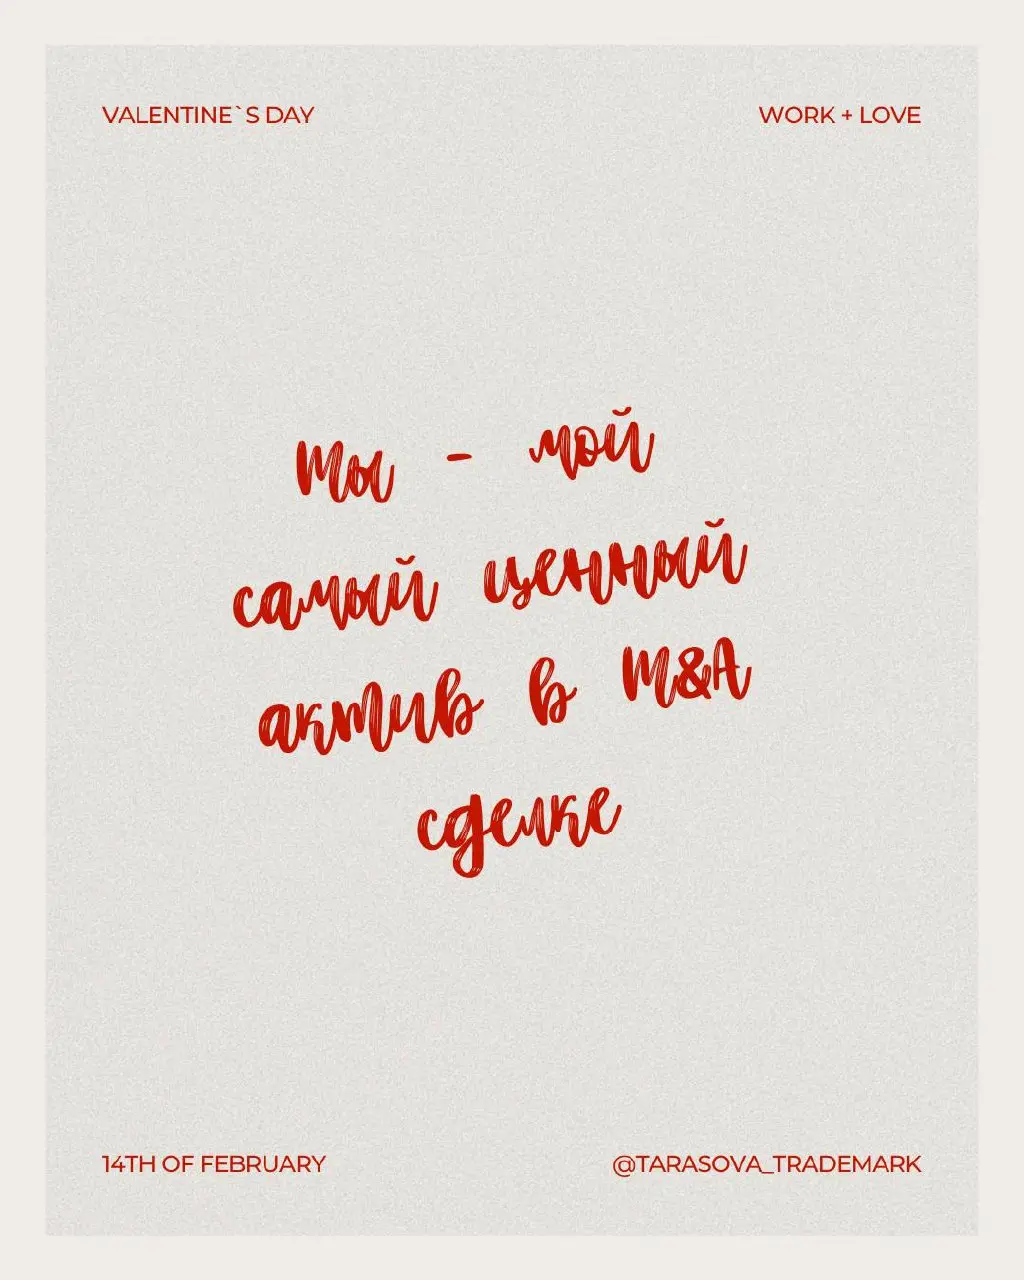 VALENTINE`S DAY
WORK + LOVE
Ты - мой
самый ценный
актив в M&A
сделке
14TH OF FEBRUARY
@TARASOVA_TRADEMARK